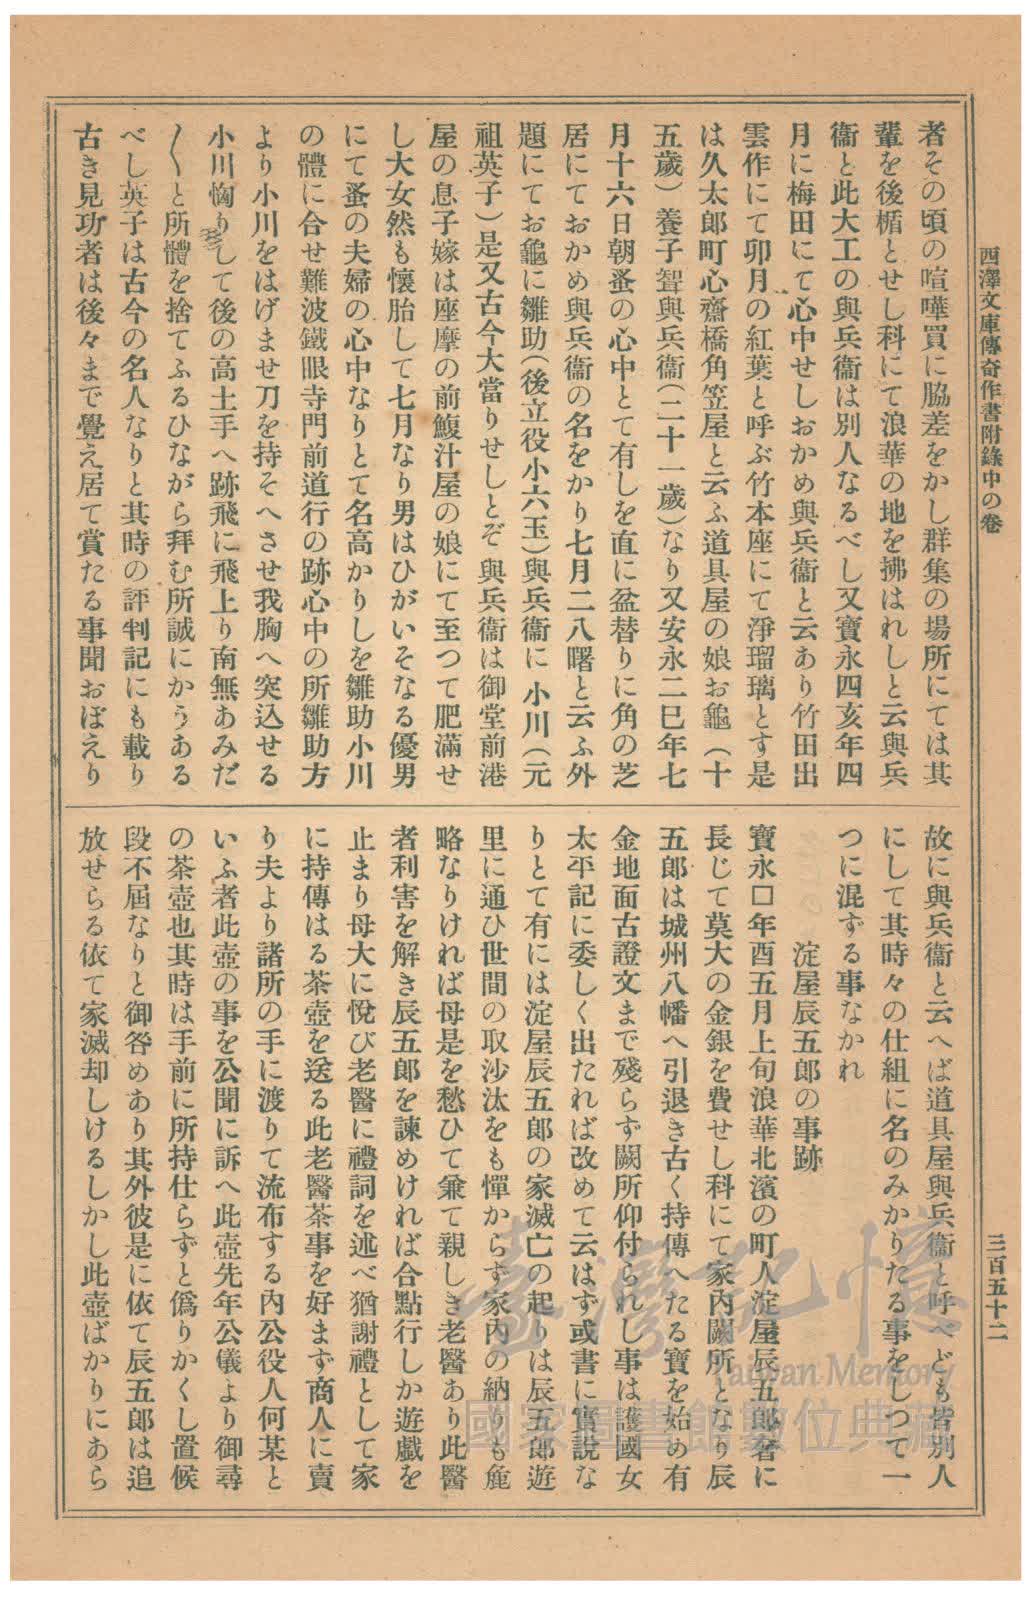 西澤文庫傳奇作書附錄中の卷
三百五十二
者その頃の喧嘩買に脇差をかし群集の場所にては其
輩を後楯とせし科にて浪華の地を拂はれしと云與兵
衞と此大工の與兵衞は別人なるべし又寶永四亥年四
月に梅田にて心中せしおかめ與兵衞と云あり竹田出
雲作にて卯月の紅葉と呼ぶ竹本座にて淨瑠璃とす是
は久太郎町心齋橋角笠屋と云ふ道具屋の娘お龜(十
五歲)養子聟與兵衞(二十一歲)なり又安永二巳年七
月十六日朝蚤の心中とて有しを直に盆替りに角の芝
居にておかめ與兵衞の名をかり七月二八曙と云ふ外
題にてお龜に雛助(後立役小六玉)與兵衞に小川(元
祖英子)是又古今大當りせしとぞ與兵衞は御堂前湊
屋の息子嫁は座摩の前鰒汁屋の娘にて至つて肥滿せ
し大女然も懷胎して七月なり男はひがいそなる優男
にて蚤の夫婦の心中なりとて名高かりしを雛助小川
の體に合せ難波鐵眼寺門前道行の跡心中の所雛助方
より小川をはげませ刀を持そへさせ我胸へ突込せる
小川恟りして後の高土手へ跡飛に飛上り南無あみだ
〱と所體を捨てふるひながら拜む所誠にかうある
べし英子は古今の名人なりと其時の評判記にも載り
古き見功者は後々まで覺え居て賞たる事聞おぼえり
故に與兵衞と云へば道具屋與兵衞と呼べども皆別人
にして其時々の仕組に名のみかりたる事をしつて一
つに混ずる事なかれ
淀屋辰五郎の事跡
寶永□年酉五月上旬浪華北濱の町人淀屋辰五郎奢に
長じて莫大の金銀を費せし科にて家內闕所となり辰
五郎は城州八幡へ引退き古く持傳へたる寶を始め有
金地面古證文まで殘らず闕所仰付られし事は護國女
太平記に委しく出たれば改めて云はず或書に實說な
りとて有には淀屋辰五郎の家滅亡の起りは辰五郎遊
里に通ひ世間の取沙汰をも憚からず家內の納りも麁
略なりければ母是を愁ひて兼て親しき老醫あり此醫
者利害を解き辰五郎を諫めければ合點行しか遊戲を
止まり母大に悅び老醫に禮詞を述べ猶謝禮として家
に持傳はる茶壺を送る此老醫茶事を好まず商人に賣
り夫より諸所の手に渡りて流布する內公役人何某と
いふ者此壺の事を公聞に訴へ此壺先年公儀より御尋
の茶壺也其時は手前に所持仕らずと僞りかくし置候
段不屆なりと御咎めあり其外彼是に依て辰五郎は追
放せらる依て家滅却しけるしかし此壺ばかりにあら
臺灣記憶
Taiwan Memory
國家圖書館數位典藏